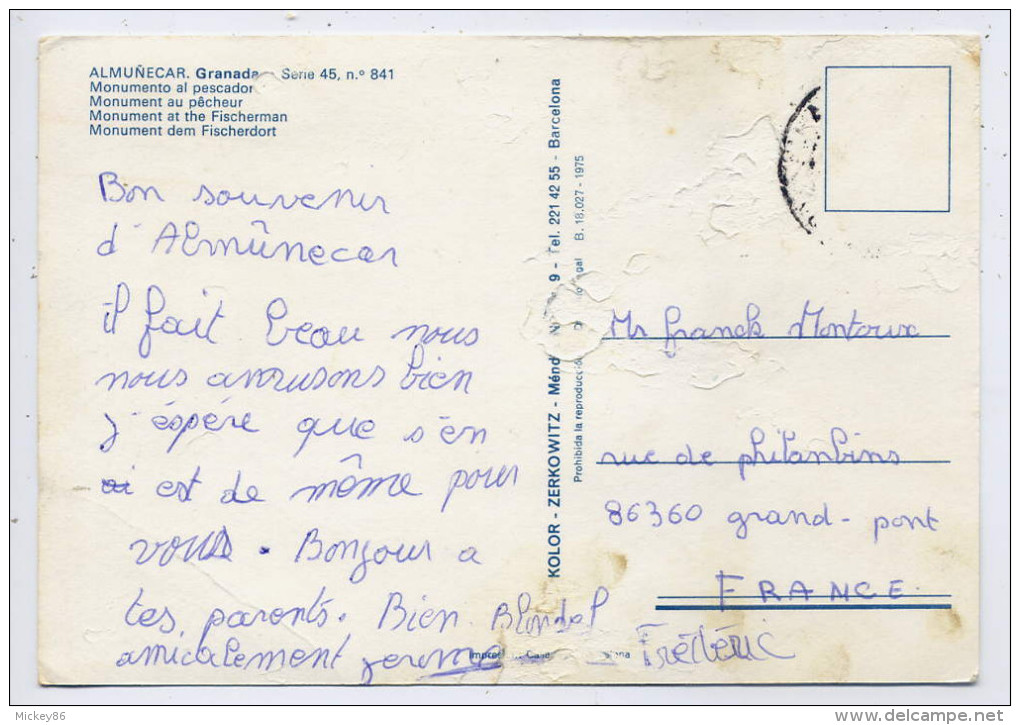 ALMUÑECAR. Granada Serie 45, n.º 841
Monumento al pescador
Monument au pêcheur
Monument at the Fischerman
Monument dem Fischerdort
Bon souvenir
d'Almûnecar
il fait beau nous
nous amusons bien
J'éspére que s'en
est de même pour
vous. Bonjour a
tes parents. Bien
amicalement jerome Blondel
Frédéric
KOLOR - ZERKOWITZ - Ménd 9 - Tel. 221 42 55 - Barcelona
Prohibida la reproducción B. 18.027 - 1975
Mr franck Montoux
rue de philanbins
86360 grand-pont
FRANCE.
Mickey86
delcampe.net